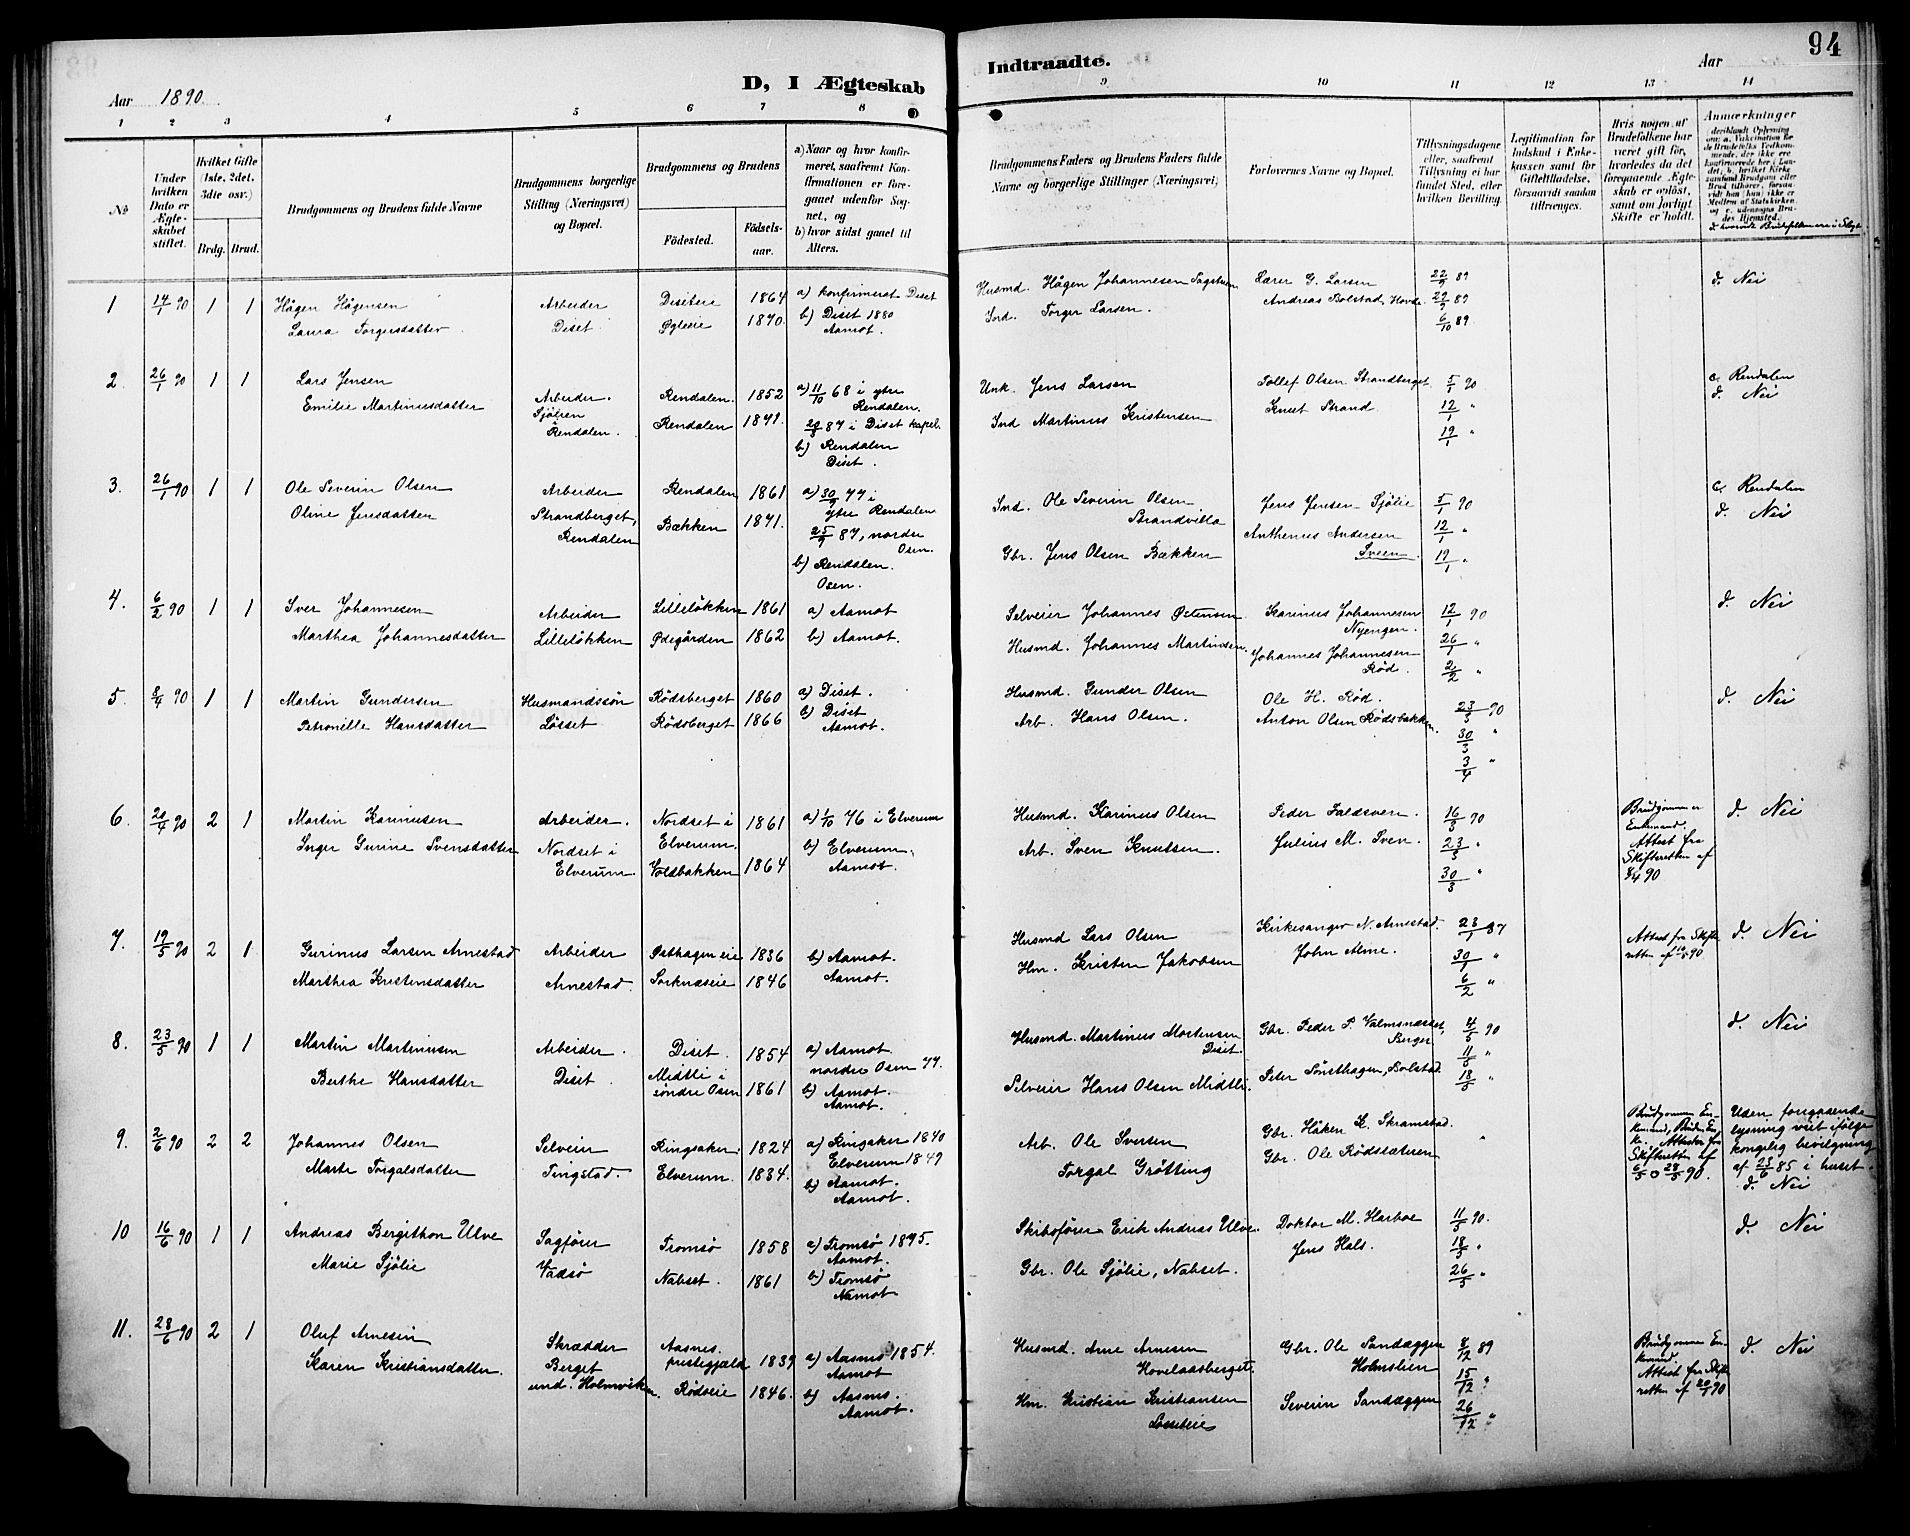 94
Aar 1890.
D, I Ægteskab
Indtraadte.
Aar
1 2 3 4 5 6 7 8 9 10 11 12 13 14
№
Under hvilken Dato er Ægteskabet stiftet.
Hvilket Gifte (1ste, 2det, 3die osv.)
Brdg. Brud.
Brudgommens og Brudens fulde Navne
Brudgommens borgerlige Stilling (Næringsvei) og Bopæl.
Brudgommens og Brudens
Födested.
Födselsaar.
a) Naar og hvor konfirmeret, saafremt Konfirmationen er foregaaet udenfor Sognet, og
b) hvor sidst gaaet til Alters.
Brudgommens Faders og Brudens Faders fulde Navne og borgerlige Stillinger (Næringsvei)
Forlovernes Navne og Bopæl.
Tillysningsdagene eller, saafremt Tillysning ei har fundet Sted, efter hvilken Bevilling.
Legitimation for Indskud i Enkekassen samt for Giftetilladelse, forsaavidt saadan tiltrænges.
Hvis nogen af Brudefolkene har været gift för, hvorledes da det foregaaende Ægteskab er oplöst, samt om lovligt Skifte er holdt.
Anmærkninger
1 14/1 90 1 1 Hågen Hågensen Arbeider Diseteie 1864 a) konfirmerat Diset
Laura Torgersdatter Diset Ygleeie 1870. b) Diset 1880
Aamot.
Husmd. Hågen Johannesen Sagstuen Lærer G. Larsen 22/9 89 d. Nei
Ind. Torger Larsen. Andreas Bolstad, Hovde. 29/9 89
6/10 89
2. 26/1 90 1 1 Lars Jensen Arbeider. Rendalen. 1852 a) 11/10 68 i ytre Rendalen.
Emilie Martinusdatter Sjölien Rendalen. Rendalen 1871. 87 i Diset kapel.
b) Rendalen
Diset.
Unk. Jens Larsen Tollef Olsen Strandberget 5/1 90 c. Rendalen
Ind Martinus Kristensen Knut Strand 12/1 " d. Nei
19/1 "
3. 26/1 90 1 1 Ole Severin Olsen Arbeider Rendalen 1861 a) 30/9 77 i ytre Rendalen
Oline Jensdatter Strandberget, Rendalen Bækken 1871. 25/9 87, nordre Osen.
b) Rendalen.
Osen.
Ind. Ole Severin Olsen Strandvilla Jens Jensen Sjölie 5/1 90 c. Rendalen
Gbr. Jens Olsen Bækken Anthenus Andersen Sveen 12/1 " d. Nei
19/1 "
4. 6/2 90 1 1 Iver Johannesen Arbeider Lilleløkken 1861 a) Aamot
Marthea Johannesdatter Lilleløkken Ødegården 1862 b) Aamot.
Selveier Johannes Østensen Karinus Johannesen Nyengen. 12/1 90 d. Nei
Husmd. Johannes Martinsen. Johannes Johannesen Röd. 26/1 "
2/2 "
5. 8/4 90 1 1 Martin Gundersen Husmandssøn Rödsberget 1860 a) Diset.
Petronille Hansdatter Løsset Rödsberget 1866 b) Diset
Aamot.
Husmd. Gunder Olsen Ole H. Röd. 23/3 90 d. Nei
Arb. Hans Olsen. Anton Olsen Rödsbakken. 30/3 "
3/4 "
6. 20/4 90 2 1 Martin Karinusen Arbeider. Nordset i Elverum. 1861 a) 1/10 76 i Elverum
Inger Gurine Svensdatter Nordset i Elverum Voldbakken 1864 b) Elverum,
Aamot.
Husmd. Karinus Olsen Peder Faldsven. 16/3 90 Brudgommen er Enkemand. Attest fra Skifteretten af 90 d. Nei
Arb. Sven Knutsen. Julius M. Sven. 23/3 "
30/3 "
7. 19/5 90 2 1 Gurinus Larsen Arnestad Arbeider Østhagen eie 1836 b) Aamot.
Marthea Kristensdatter Arnestad Sorknæseie 1846 Aamot.
Husmd Lars Olsen Kirkesanger N. Arnestad. 23/1 87 Attest fra Skifteretten af 90 d. Nei
Hm. Kristen Jakobsen John Alme. 30/1 "
6/2 "
8. 23/5 90 1 1 Martin Martinusen Arbeider. Diset. 1854 a) Aamot.
Berthe Hansdatter Diset. Midtli i søndre Osen 1861 nordre Osen 77.
b) Aamot.
Aamot.
Husmd. Martinus Mortensen Diset. Gbr. Peder P. Valmsnæsset, Berger 4/5 90 d. Nei
Selveier Hans Olsen Midtli. Peter Sønsthagen, Bolstad. 11/5 "
18/5 "
9. 2/6 90 2 2 Johannes Olsen Selveier Ringsaker. 1824 a) Ringsaker 1840
Marte Torgalsdatter Tingstad. Elverum. 1834. Elverum 1849
b) Aamot.
Aamot.
Arb. Ole Iversen Gbr. Håken K. Skramstad. " Brudgommen Enkemand, Bruden Enke. Attester fra Skifteretten af 6/5 o 28/5 90.
Torgal Grøtting Gbr. Ole Rödssæteren Uden forgaaende lysning viet ifølge kongelig bevilgning af 23/6 85 i huset.
d. Nei
10 16/6 90 1 1 Andreas Bergithon Ulve Sagfører Tromsø 1858 a) Tromsø 1875.
Marie Sjölie Vadsø Nabset. 1861 Aamot.
b) Tromsø
Aamot
Skibsfører Erik Andreas Ulve. Doktor M. Harboe 11/5 90. d. Nei
Gbr. Ole Sjölie, Nabset. Jens Hals. 18/5 "
26/5 "
11. 28/6 90 2 1 Oluf Arnesen Skrædder Aasnes prestegjæld 1839 a) Aasnes 1854.
Karen Kristiansdatter. Berget und. Holmviken. Rödseie 1846. Aamot
b) Aasnes.
Aamot.
Husmd. Arne Arnesen Hovelaasberget Gbr. Ole Sandæggen Holmstien 8/12 89 Brudgommen Enkemand. Attest fra Skifteretten af 20/1 90 d. Nei
Hm. Kristian Kristiansen Løsseteie Severin Sandæggen 15/12 "
26/12 "